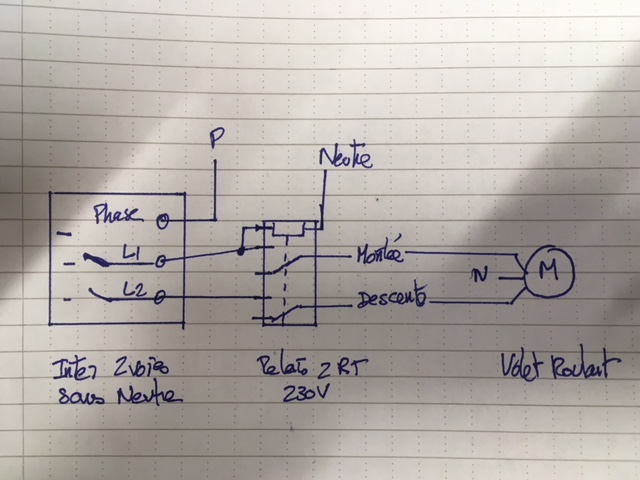 P
Neutre
Phase
L1
Montée
N
M
L2
Descente
Inter 2 voies
sans Neutre
Relais 2 RT
230V
Volet Roulant